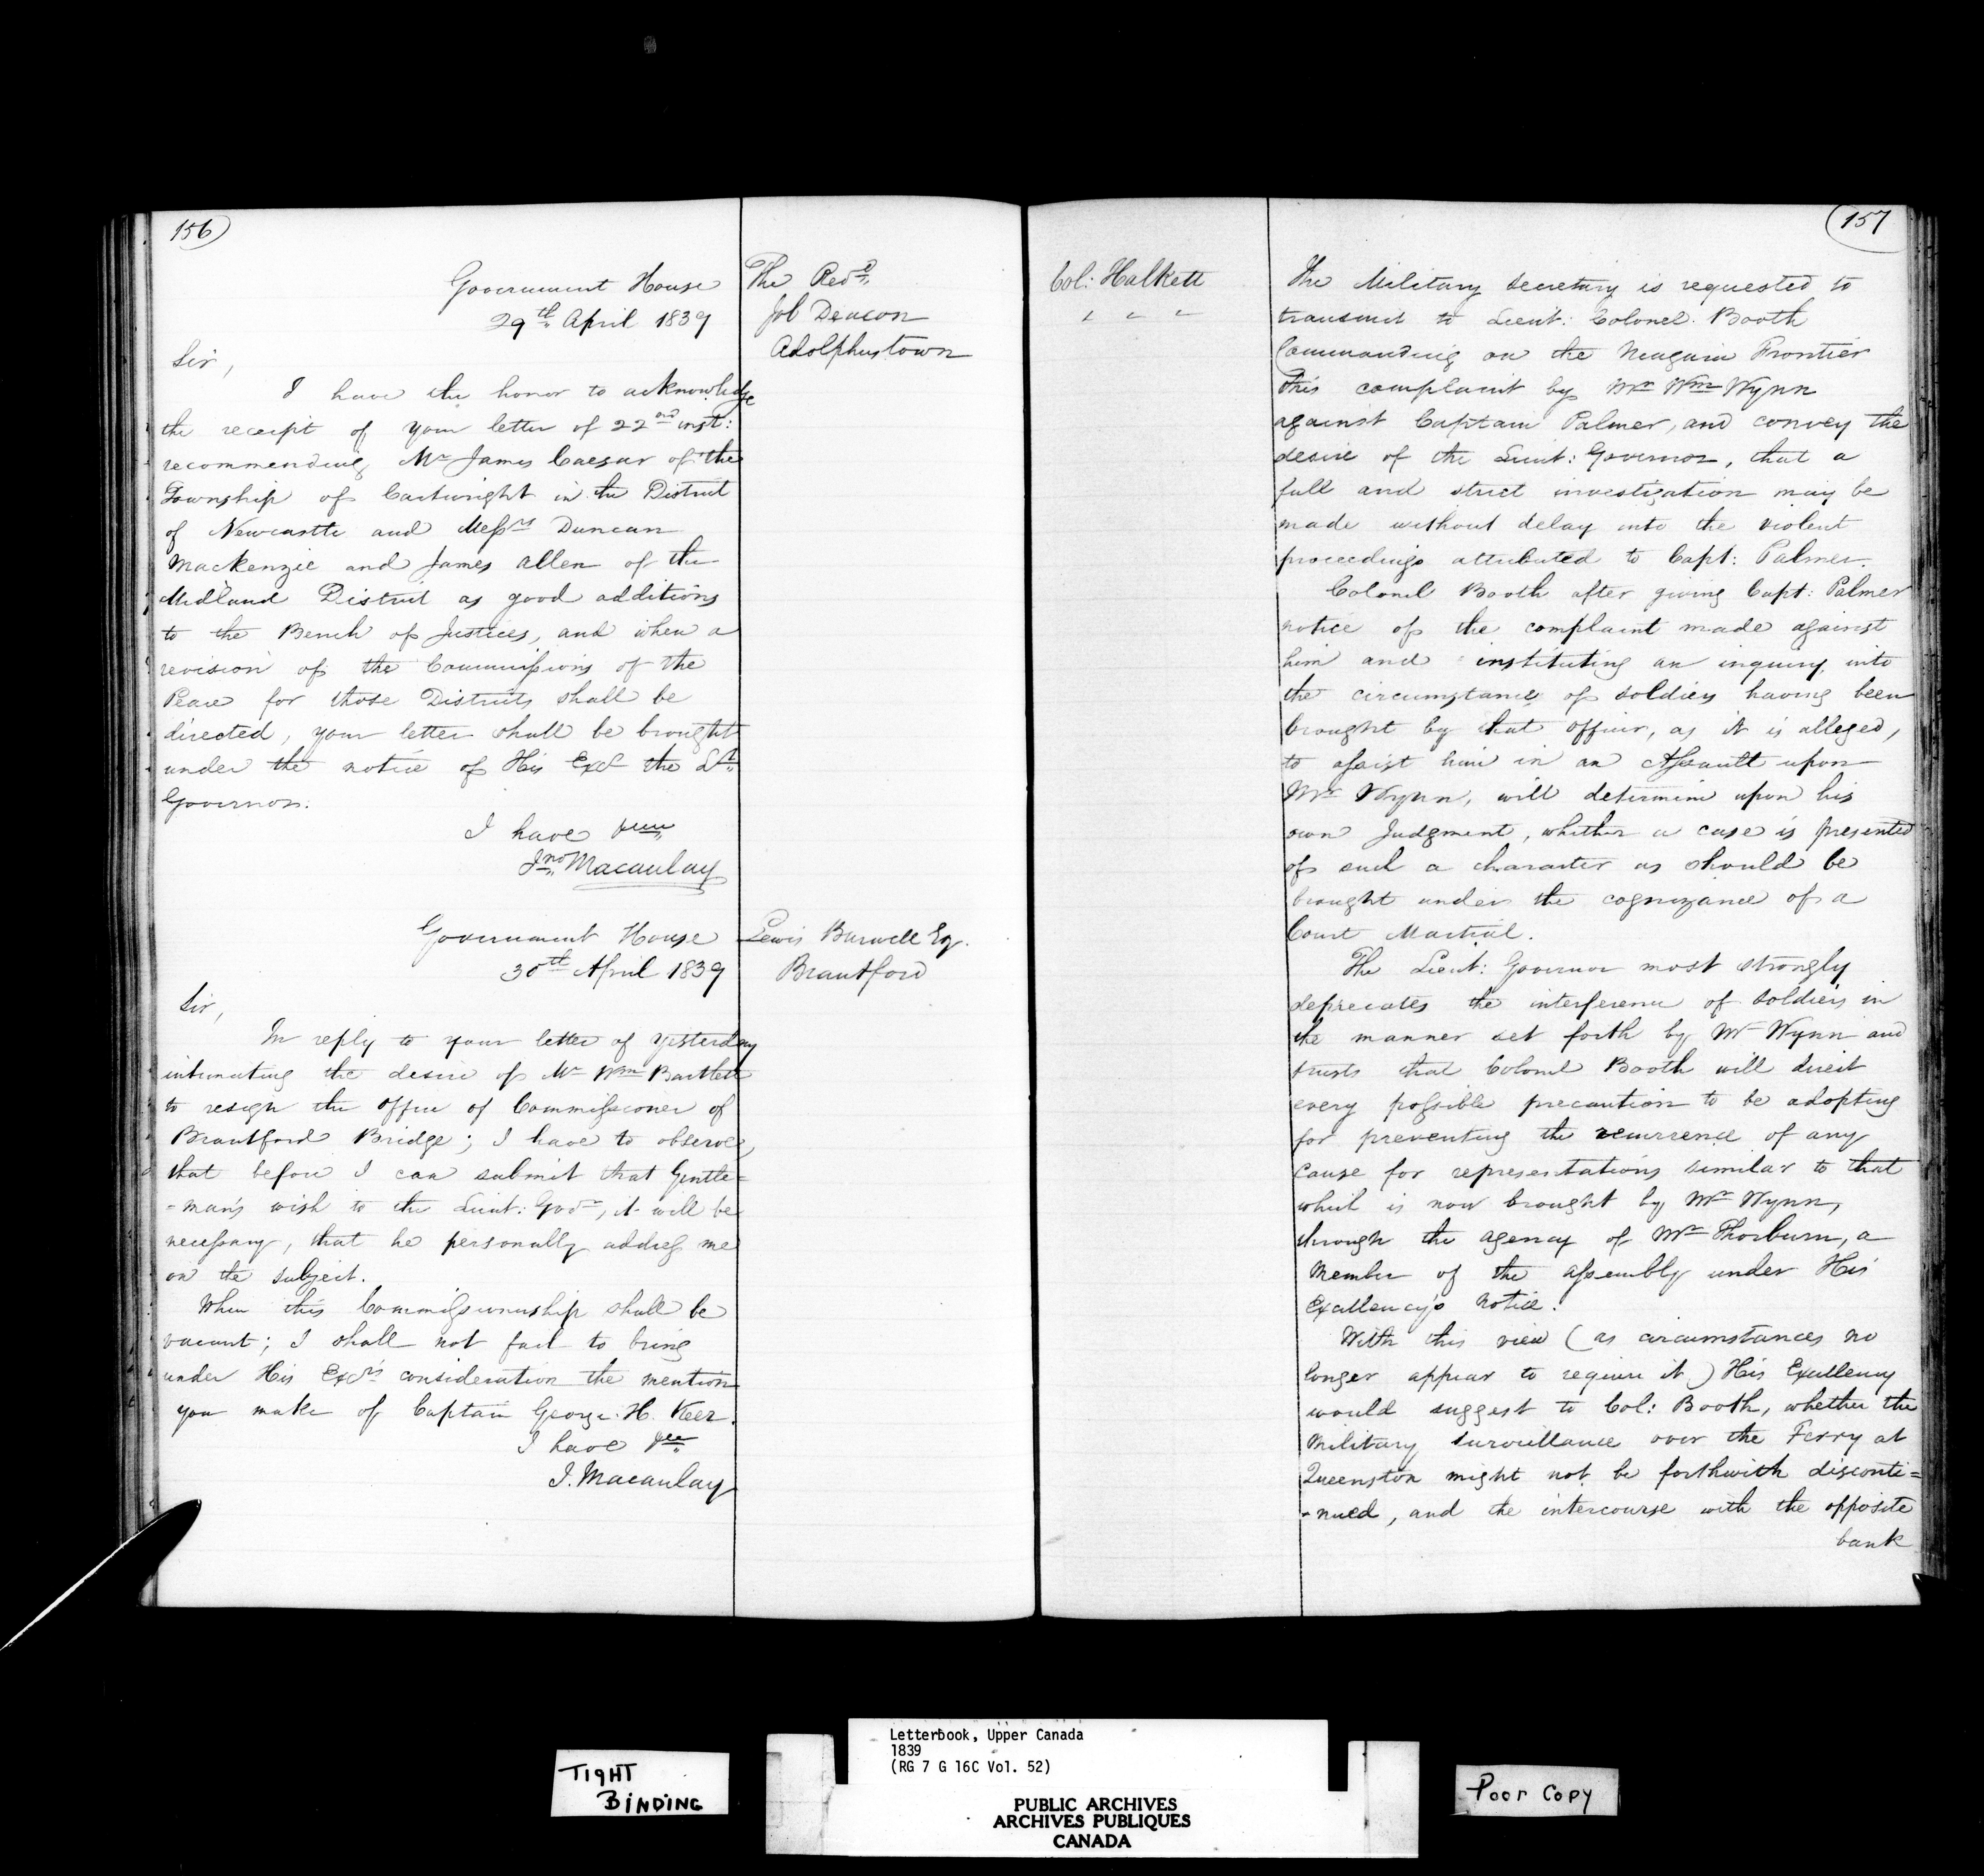 156
Government House
29th April 1839
The Revd
Job Deacon
Adolphustown
Sir,
I have the honor to acknowledge
the receipt of your letter of 22nd inst:
recommending Mr James Caesar of the
Township of Cartwright in the District
of Newcastle and Messrs Duncan
Mackenzie and James Allen of the
Midland District as good additions
to the Bench of Justices, and when a
revision of the Commissions of the
Peace for those Districts shall be
directed, your letter shall be brought
under the notice of His Excy the Lt
Governor.
I have
Jno Macaulay
Government House
30th April 1839
Lewis Burwell Esq.
Brantford
Sir,
In reply to your letter of yesterday
intimating the desire of Mr Wm Bartlett
to resign the office of Commissioner of
Brantford Bridge; I have to observe,
that before I can submit that Gentle=
-man's wish to the Lieut: Govr, it will be
necessary, that he personally address me
on the subject.
When this Commissionership shall be
vacant; I shall not fail to bring
under His Excy's consideration the mention
you make of Captain George H. Keer.
I have
J. Macaulay
157
Col: Halkett
" " "
The Military Secretary is requested to
transmit to Lieut: Colonel Booth
Commanding on the Niagara Frontier
this complaint by Mr Wm Wynn
against Captain Palmer, and convey the
desire of the Lieut: Governor, that a
full and strict investigation may be
made without delay into the violent
proceedings attributed to Capt: Palmer.
Colonel Booth after giving Capt: Palmer
notice of the complaint made against
him and instituting an inquiry into
the circumstance of soldiers having been
brought by that officer, as it is alleged,
to assist him in an Assault upon
Mr Wynn, will determine upon his
own Judgment, whether a case is presented
of such a character as should be
brought under the cognizance of a
Court Martial.
The Lieut: Governor most strongly
deprecates the interference of soldiers in
the manner set forth by Mr Wynn and
trusts that Colonel Booth will direct
every possible precaution to be adopting
for preventing the recurrence of any
cause for representations similar to that
which is now brought by Mr Wynn,
through the agency of Mr Thorburn, a
Member of the Assembly under His
Excellency's notice.
With this view (as circumstances no
longer appear to require it) His Excellency
would suggest to Col: Booth, whether the
Military surveillance over the Ferry at
Queenston might not be forthwith disconti=
-nued, and the intercourse with the opposite
bank
TIGHT
BINDING
Letterbook, Upper Canada
1839
(RG 7 G 16C Vol. 52)
PUBLIC ARCHIVES
ARCHIVES PUBLIQUES
CANADA
Poor Copy